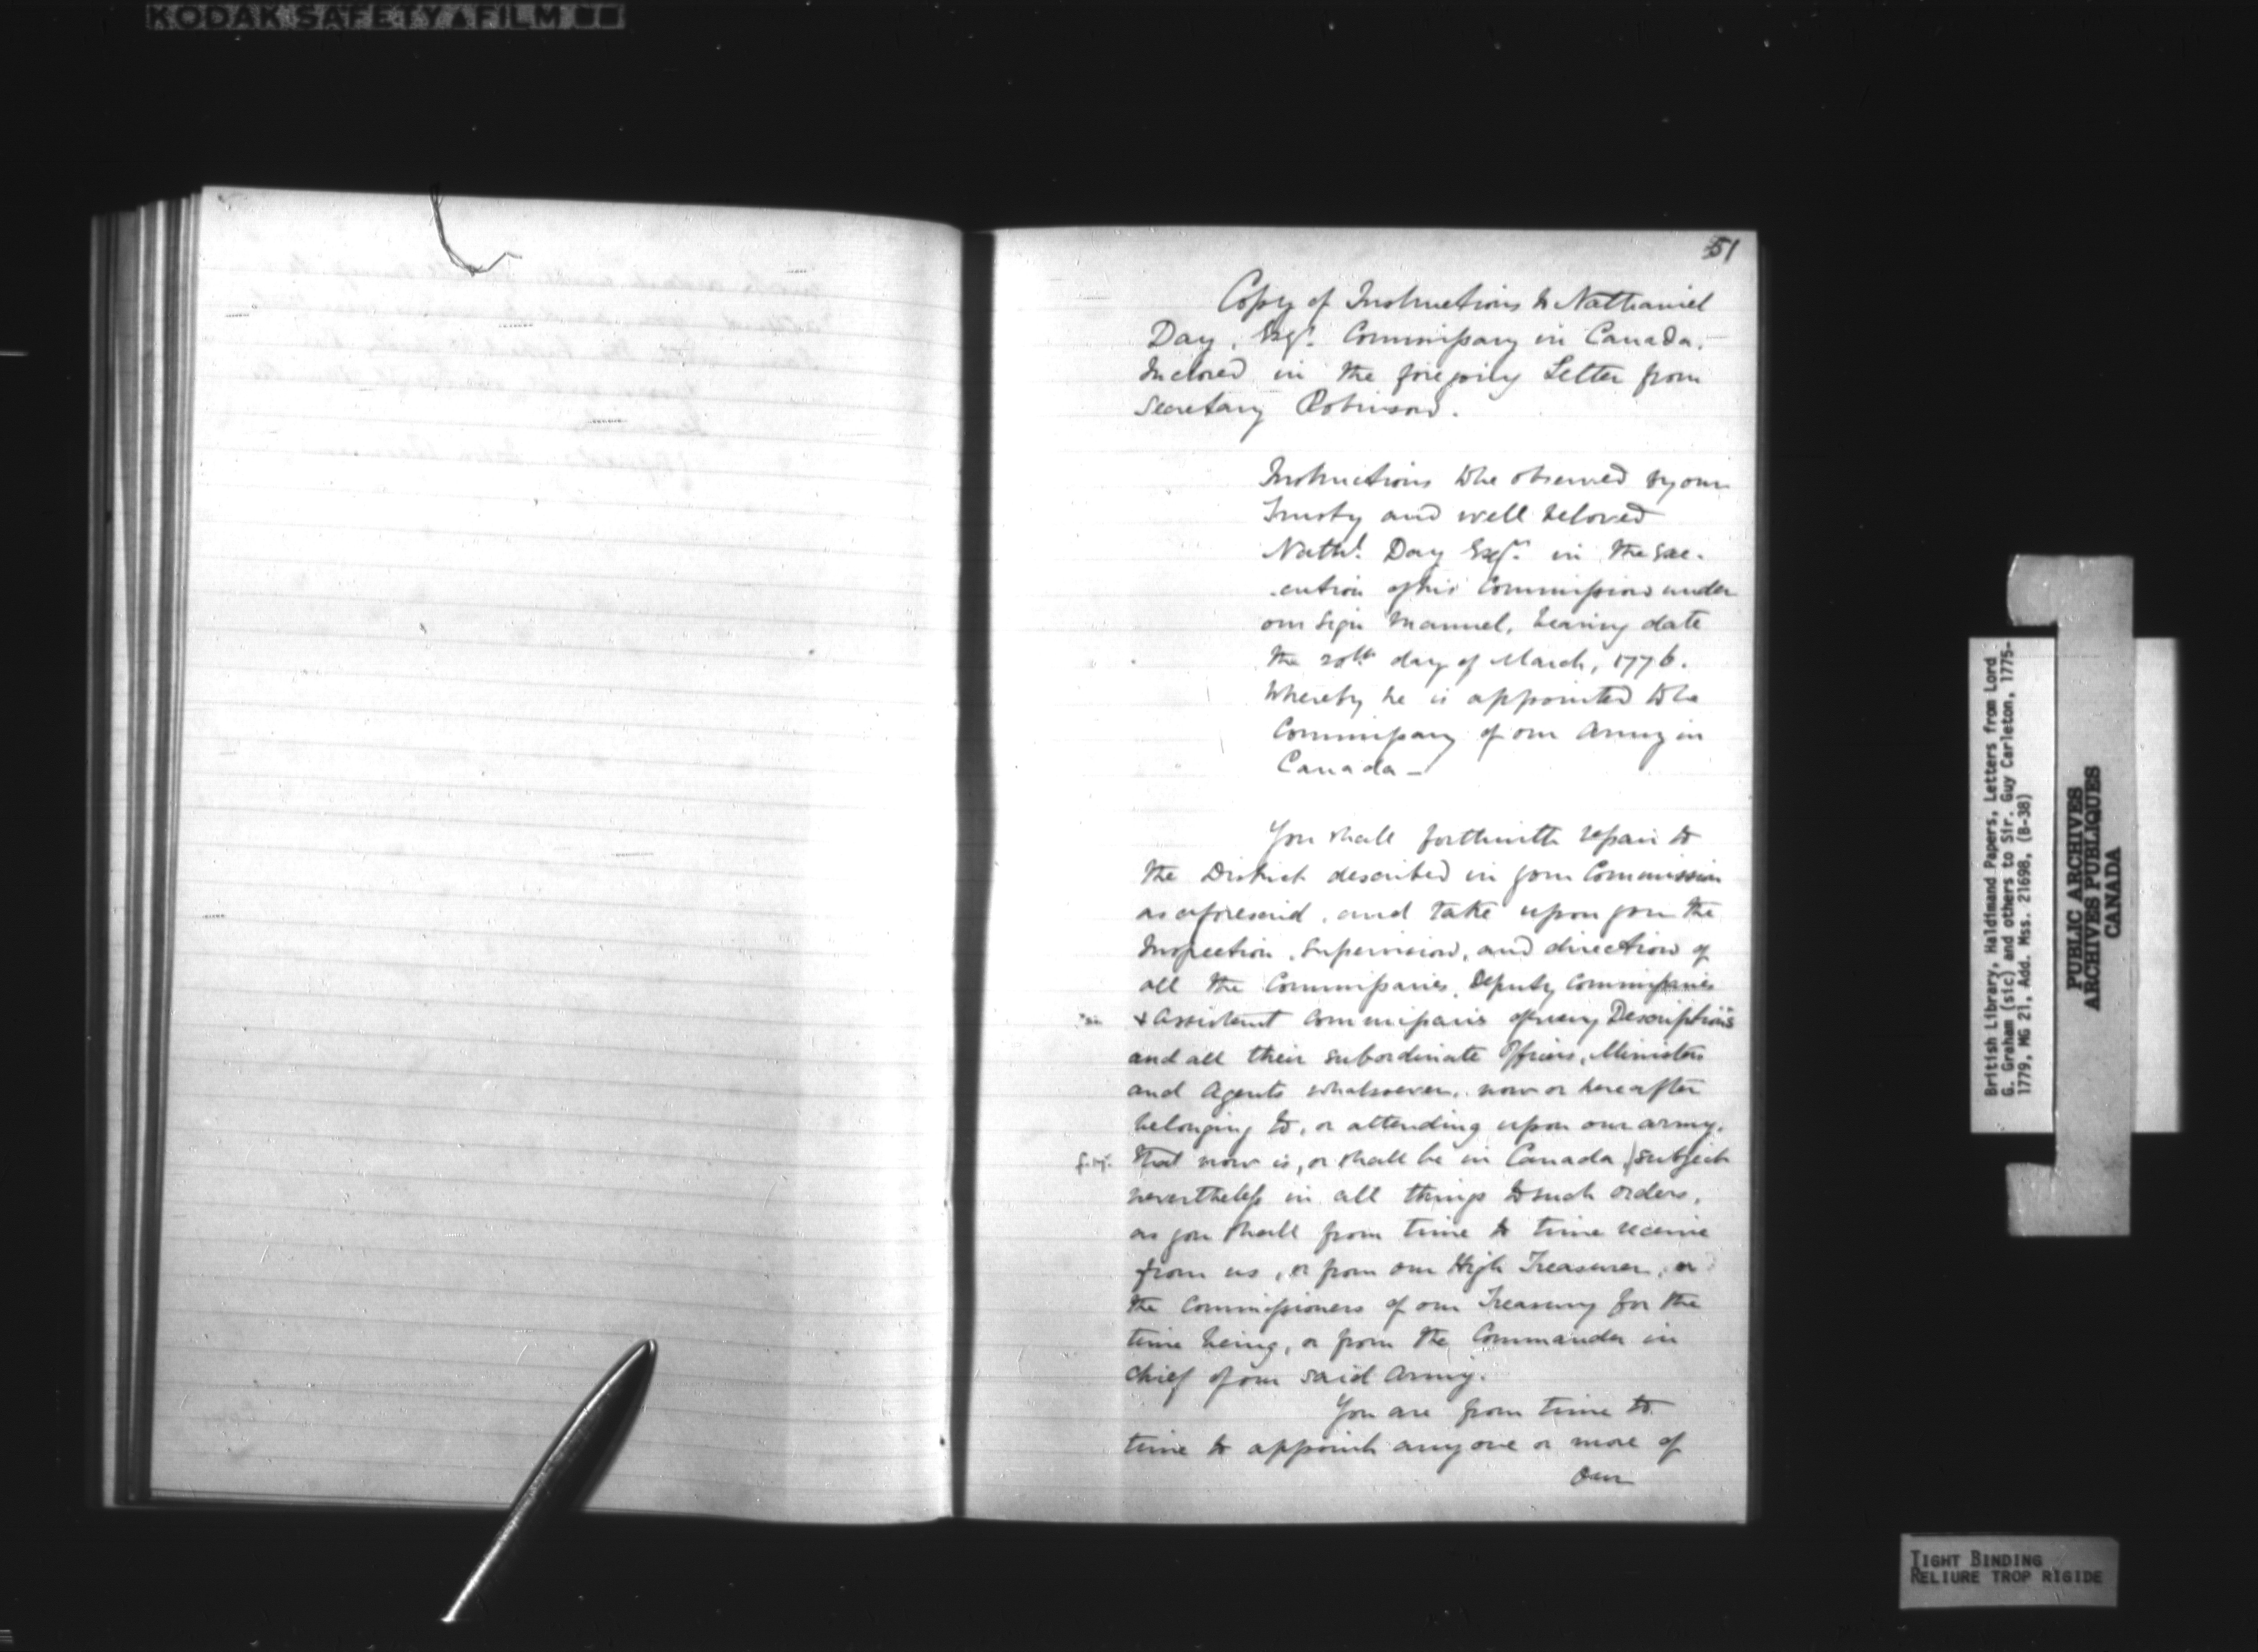 KODAK SAFETY FILM
51
Copy of Instructions to Nathaniel
Day, Esqr. Commissary in Canada.
Inclosed in the foregoing Letter from
Secretary Robinson.
Instructions to be observed by our
Trusty and well beloved
Nathl. Day Esqr. in the Exe-
-cution of his Commission under
our Sign Manuel, bearing date
the 20th day of March, 1776.
Whereby he is appointed to be
Commissary of our Army in
Canada —
You shall forthwith repair to
the District described in your Commission
as aforesaid, and take upon you the
Inspection, Supervision, and direction of
all the Commissaries, Deputy Commissaries
& Assistant Commissaris of every Descriptions
and all their subordinate Officers, Ministers
and Agents whatsoever, now or hereafter
belonging to, or attending upon our army,
that now is, or shall be in Canada, subject
nevertheless in all things to such orders,
as you shall from time to time receive
from us, or from our High Treasurer, or
the Commissioners of our Treasury for the
time being, or from the Commander in
Chief of our said Army.
You are from time to
time to appoint any one or more of
our
British Library, Haldimand Papers, Letters from Lord
G. Graham (sic) and others to Sir. Guy Carleton, 1775-
1779, MG 21, Add. Mss. 21698, (B-38)
PUBLIC ARCHIVES
ARCHIVES PUBLIQUES
CANADA
TIGHT BINDING
RELIURE TROP RIGIDE